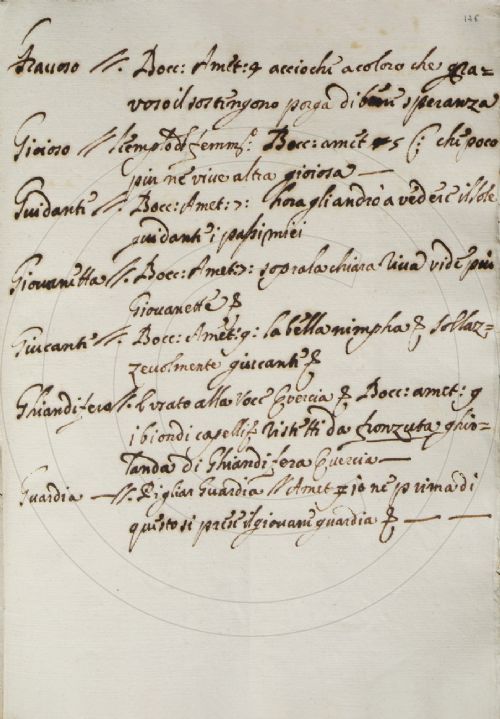 126
Gravoso //. Bocc: Amet: 9 acciochè a coloro che gra=
voso il sostengono porga di beni speranza
Gioioso // femmᵉ. Bocc: amet 5 che poco
piu ne vive altra gioiosa —
Guidanti //. Bocc: Amet: 7: hora gli andrò a vedere il sole
guidanti i passi miei
Giovanetta //. Bocc: Amet: 7: sopra la chiara riva vide più
Giovanette &
Giucanti //. Bocc: Amet: 9: la bella nimpha & sollaz=
zevolmente giucanti &
Ghiandifero //. alla voce Quercia & Bocc: amet: 9
i biondi capelli & ristretti da fronzuta ghir=
landa di Ghiandifera Quercia —
Guardia — //. Pigliar Guardia // Amet 7 io ne prima di
questo si prese il giovane guardia & — —